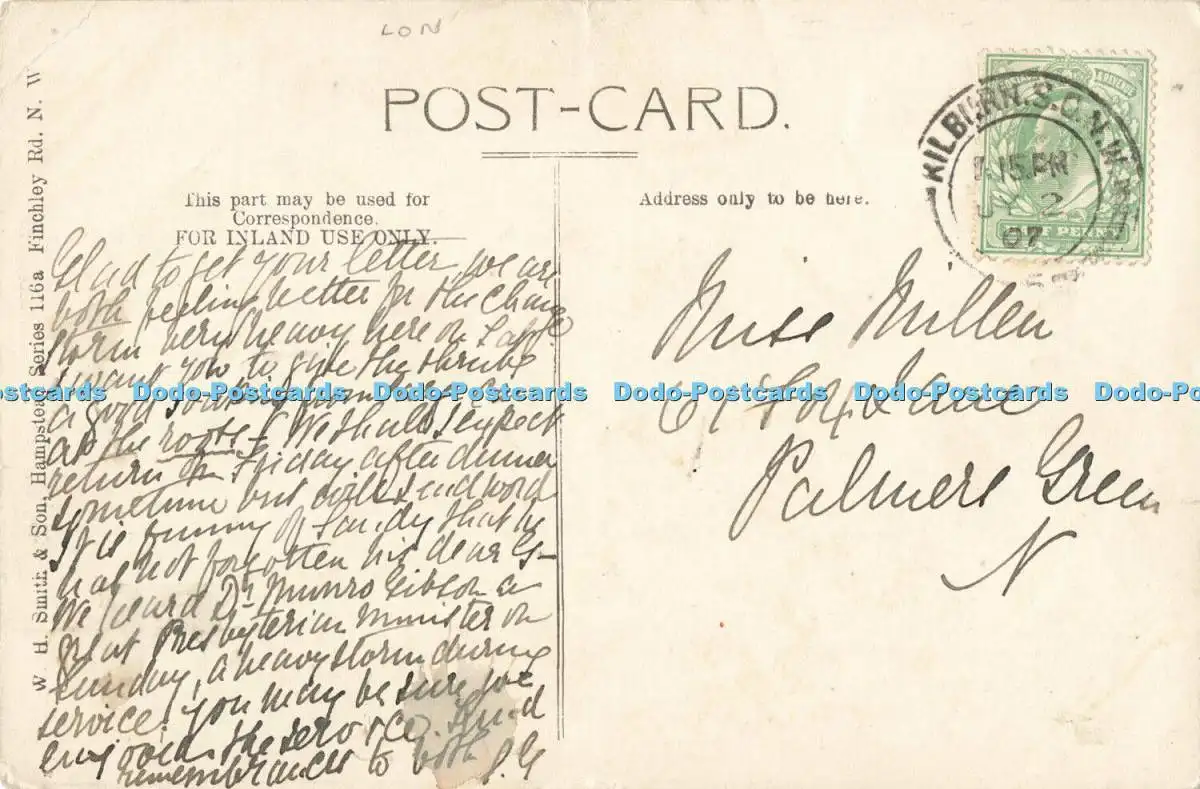 LON
POST-CARD.
This part may be used for
Correspondence.
FOR INLAND USE ONLY.
Address only to be here.
W. H. Smith & Son, Hampstead Series 116a Finchley Rd. N. W
KILBURN. S.O. N.W.
15 PM
2
07
HALF PENNY
Glad to get your letter, we are
both feeling better for the change
storm very heavy here on
I want you to give the shrubs
a good
at the roots - We shall expect
return on Friday after dinner
sometime but will send word
It is funny of Sandy that he
has not forgotten his dear G-
We heard Dr Munro Gibson a
great Presbyterian minister on
Sunday, a heavy storm during
service. You may be sure we
enjoyed the service. Kind
remembrances to both
Miss Millen
Fox Lane
Palmers Green
N
Dodo-Postcards Dodo-Postcards Dodo-Postcards Dodo-Postcards Dodo-Postcards Dodo-Postcards